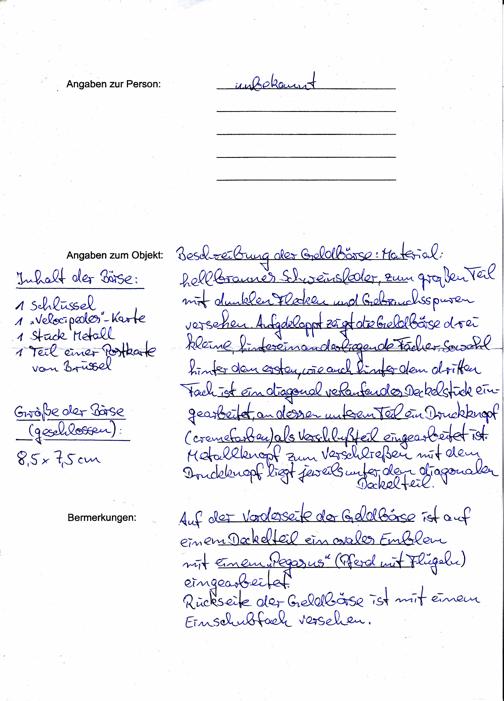 Angaben zur Person: unbekannt
Angaben zum Objekt: Beschreibung der Geldbörse: Material:
hellbraunes Schweinsleder, zum großen Teil
mit dunklen Flecken und Gebrauchsspuren
versehen. Aufgeklappt zeigt die Geldbörse drei
kleine, hintereinanderliegende Fächer. Sowohl
hinter dem ersten, wie auch hinter dem dritten
Fach ist ein diagonal verlaufendes Deckelstück ein-
gearbeitet, an dessen unteren Teil ein Druckknopf
(cremefarben) als Verschlußteil eingearbeitet ist.
Metallknopf zum Verschließen mit dem
Druckknopf liegt jeweils unter dem diagonalen
Deckelteil.
Inhalt der Börse:
1 Schlüssel
1 „Velocipedes"-Karte
1 Stück Metall
1 Teil einer Postkarte
von Brüssel
Größe der Börse
(geschlossen):
8,5 x 7,5 cm
Bermerkungen: Auf der Vorderseite der Geldbörse ist auf
einem Deckelteil ein ovales Emblem
mit einem „Pegasus" (Pferd mit Flügeln)
eingearbeitet.
Rückseite der Geldbörse ist mit einem
Einschubfach versehen.